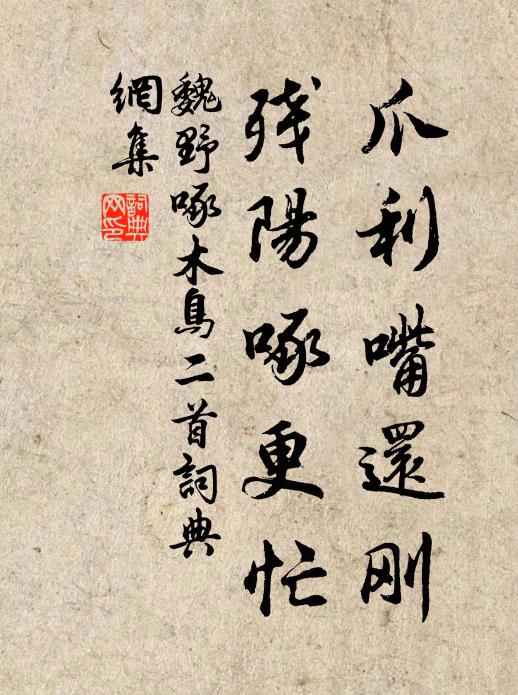 爪利嘴還刚
残陽啄更忙
魏野啄木鳥二首詞典
網集
詞典
网印